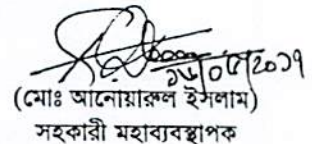 ১৮/০৫/২০১৭
(মোঃ আনোয়ারুল ইসলাম)
সহকারী মহাব্যবস্থাপক